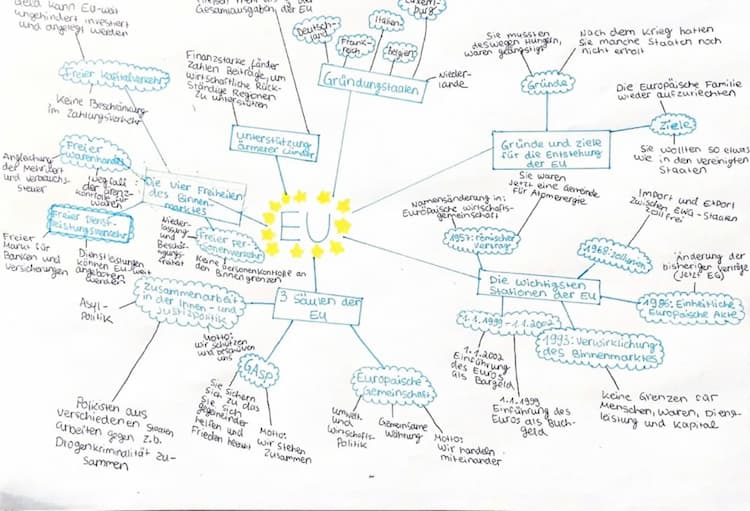 Geld kann EU-weit
ungehindert investiert
und angelegt werden
Gesamtausgaben der EU
Freier Kapitalverkehr
Keine Beschränkung
im Zahlungsverkehr
Finanzstarke Länder
zahlen Beiträge, um
wirtschaftliche Rück-
ständige Regionen
zu unterstützen
unterstützung
ärmerer Länder
Deutsch-
land
Frank-
reich
Italien
Belgien
Luxem-
burg
Gründungsstaaten
Nieder-
lande
Sie mussten
deswegen Hungern,
waren geängstigt
Nach dem Krieg hatten
Sie manche Staaten noch
nicht erholt
Gründe
Die Europäische Familie
wieder aufzurichten
Ziele
Sie wollten so etwas
wie in den vereinigten
Staaten
Gründe und ziele
für die Entstehung
der EU
Freier
Warenhandel
Angleichung
der Mehrwert
und verbrauchs-
steuer
Wegfall
der Grenz-
kontrolle für
Waren
Die vier Freiheiten
des Binnen-
marktes
Freier Dienst-
leistungsverkehr
Freier
Markt für
Banken und
Versicherungen
Dienstleistungen
können EU-weit
angeboten
werden
Nieder-
lassung-
und
Beschäf-
tigungs-
Freier per-
sonenverkehr
Keine personenkontrolle an
den Binnengrenzen
EU
Namensänderung in:
Europäische wirtschafts-
gemeinschaft
Sie waren
Jetzt eine Gemeinde
für Atomenergie
1957: römischer
Vertrag
Import und Export
zwischen EWG-Staaten
zollfrei
1968: Zollunion
Die wichtigsten
Stationen der EU
Änderung der
bisheriger verträge
(Jetzt EG)
1986: Einheitliche
Europäische Akte
1993: Verwirklichung
des Binnenmarktes
Keine Grenzen für
Menschen, Waren, Dienst-
leistung und Kapital
1.1.1999 - 1.1.2002
1.1.2002
Einführung
des Euros
als Bargeld
1.1.1999
Einführung des
Euros als Buch-
geld
3 Säulen der
EU
Zusammenarbeit
in der Innen- und
Justizpolitik
Asyl-
Politik
Motto:
wir schützen
uns
Polizisten aus
verschiedenen Staaten
arbeiten gegen z.b.
Drogenkriminalität zu-
sammen
GASP
Sie sichern
sich zu das
Sie sich
gegeneinander
helfen und
Frieden
Motto:
wir stehen
zusammen
Europäische
Gemeinschaft
Umwelt
und
Wirtschafts-
Politik
Gemeinsame
Währung
Motto:
Wir handeln
miteinander